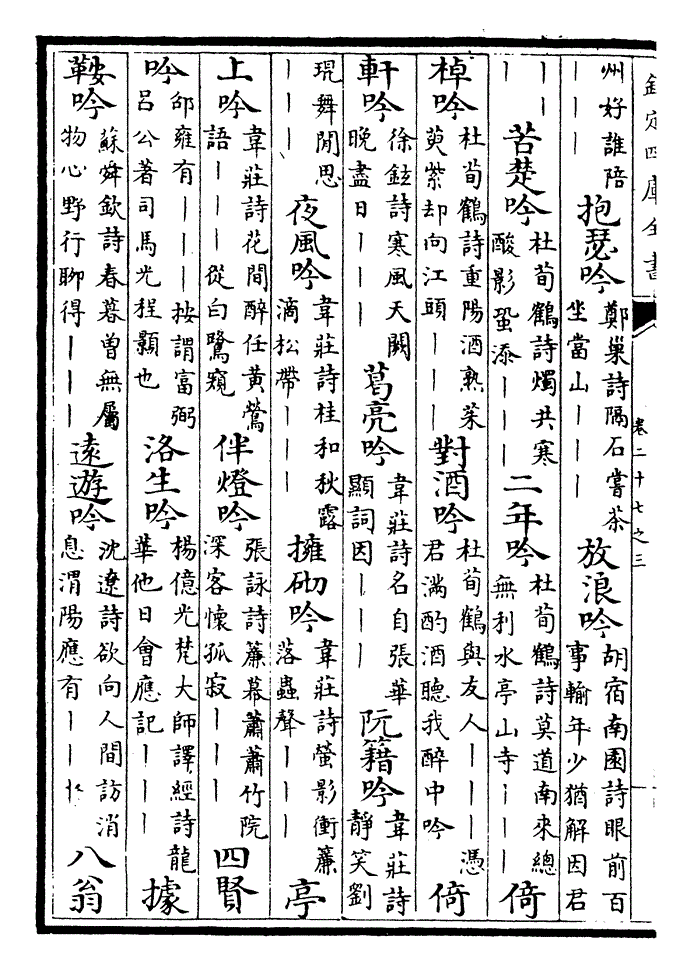 欽定四庫全書
卷二十七之三
州好誰陪｜｜｜抱瑟吟鄭巢詩隔石嘗茶坐當山｜｜｜放浪吟胡宿南園詩眼前百事輸年少猶解因君
｜｜｜苦楚吟杜荀鶴詩燭共寒酸影蛩添｜｜｜二年吟杜荀鶴詩莫道南來總無利水亭山寺｜｜｜倚
棹吟杜荀鶴詩重陽酒熟茱萸紫却向江頭｜｜｜對酒吟杜荀鶴與友人｜｜｜憑君滿酌酒聽我醉中吟倚
軒吟徐鉉詩寒風天闕晚盡日｜｜｜葛亮吟韋莊詩名自張華顯詞因｜｜｜阮籍吟韋莊詩靜笑劉
琨舞閒思｜｜｜夜風吟韋莊詩桂和秋露滴松帶｜｜｜擁砌吟韋莊詩螢影衝簾落蟲聲｜｜｜亭
上吟韋莊詩花間醉任黃鶯語｜｜｜從白鷺窺伴燈吟張詠詩簾幕蕭蕭竹院深客懷孤寂｜｜｜四賢
吟邵雍有｜｜｜按謂富弼呂公著司馬光程顥也洛生吟楊億光梵大師譯經詩龍華他日會應記｜｜｜據
鞍吟蘇舜欽詩春暮曾無屬物心野行聊得｜｜｜遠遊吟沈遼詩欲向人間訪消息渭陽應有｜｜｜八翁